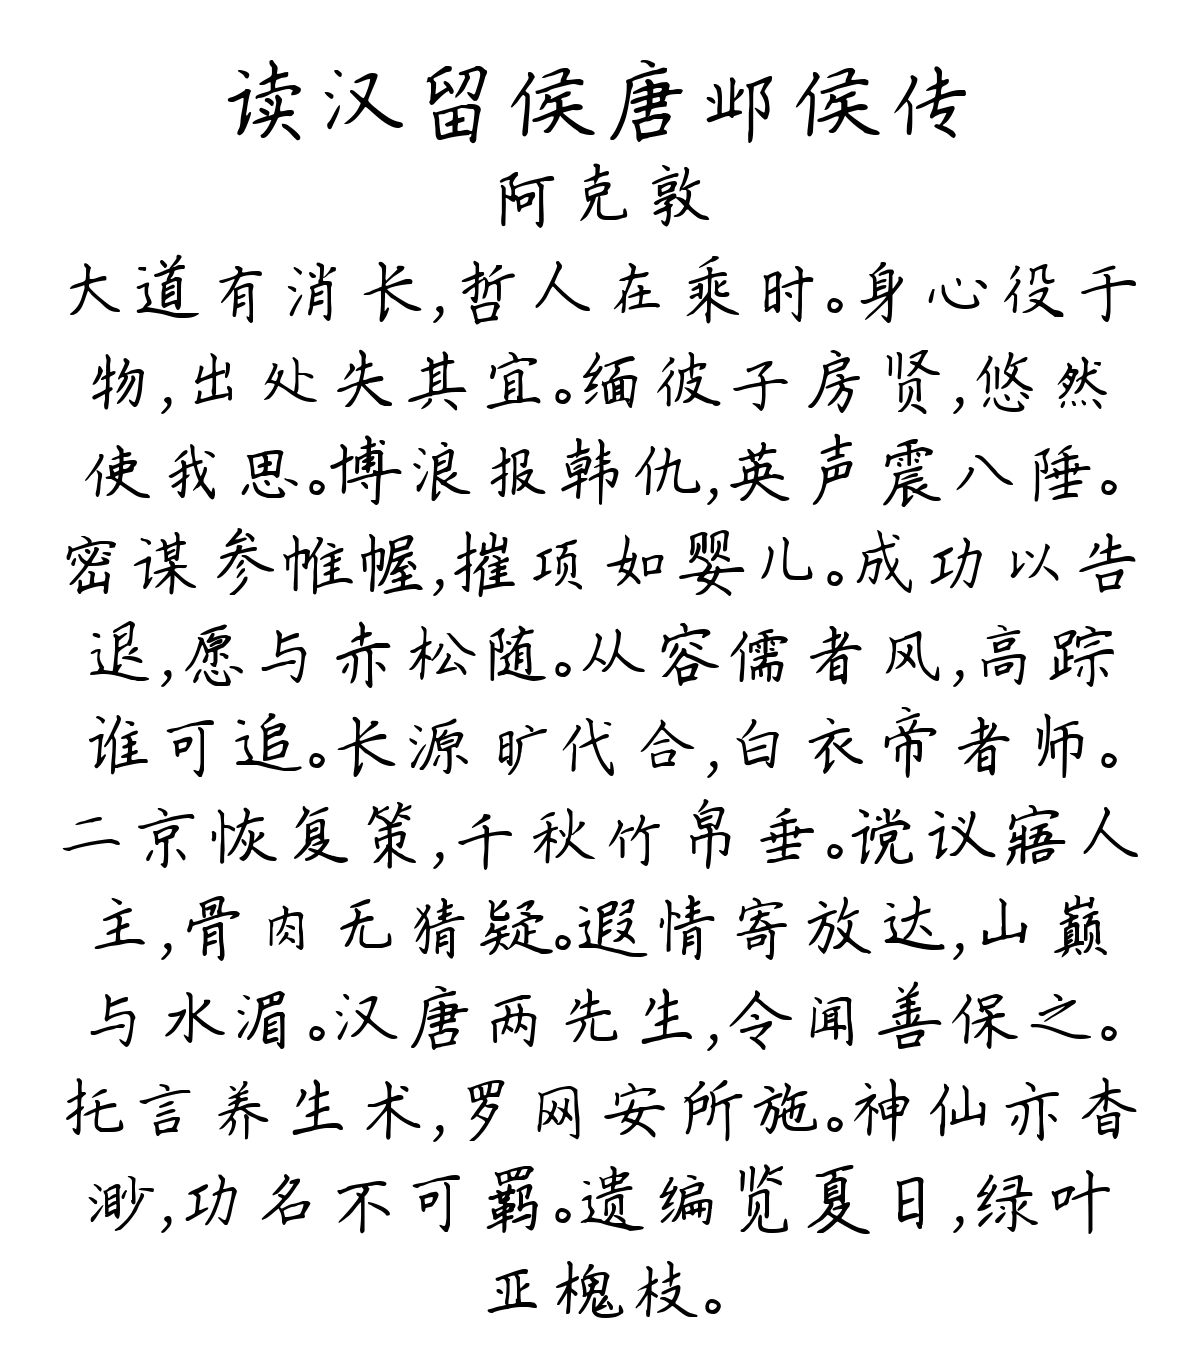 读汉留侯唐邺侯传
阿克敦
大道有消长,哲人在乘时。身心役于
物,出处失其宜。缅彼子房贤,悠然
使我思。博浪报韩仇,英声震八陲。
密谋参帷幄,摧项如婴儿。成功以告
退,愿与赤松随。从容儒者风,高踪
谁可追。长源旷代合,白衣帝者师。
二京恢复策,千秋竹帛垂。谠议寤人
主,骨肉无猜疑。遐情寄放达,山巅
与水湄。汉唐两先生,令闻善保之。
托言养生术,罗网安所施。神仙亦杳
渺,功名不可羁。遗编览夏日,绿叶
亚槐枝。